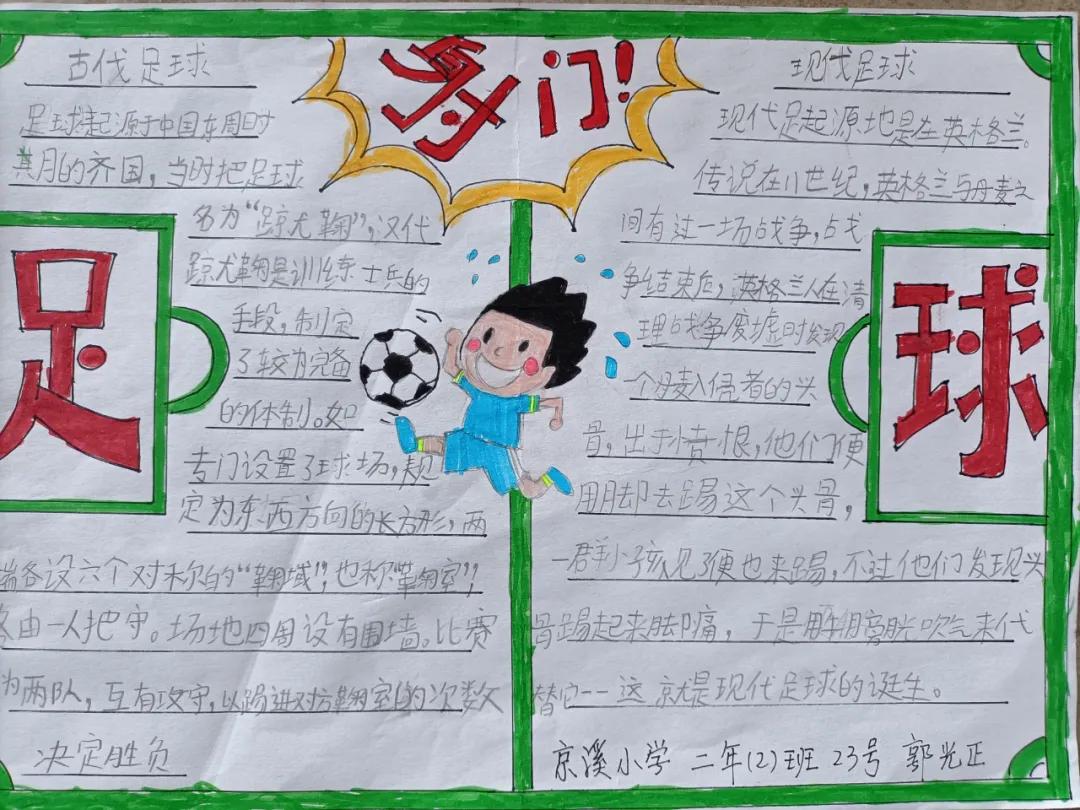 射门!
足
球
古代足球
足球起源于中国东周时
其月的齐国,当时把足球
名为“踪尤鞠”,汉代
踪尤鞠是训练士兵的
手段,制定
了较为完备
的体制。如
专门设置了球场,规
定为东西方向的长方形,两
端各设六个对称的“鞠域”,也称“鞠室”,
各由一人把守。场地四周设有围墙。比赛
为两队,互有攻守,以踢进对方鞠室的次数
决定胜负
现代足球
现代足起源地是在英格兰。
传说在11世纪,英格兰与丹麦之
间有过一场战争,占戈
争结束后,英格兰人在清
理战争废墟时发现
一个丹麦入侵者的头
骨,出于愤恨,他们便
用脚去踢这个头骨,
一群小孩见了便也来踢,不过他们发现头
骨踢起来脚痛,于是用牛膀胱吹气来代
替它--这就是现代足球的诞生。
京溪小学 二年(2)班 23号 郭光正